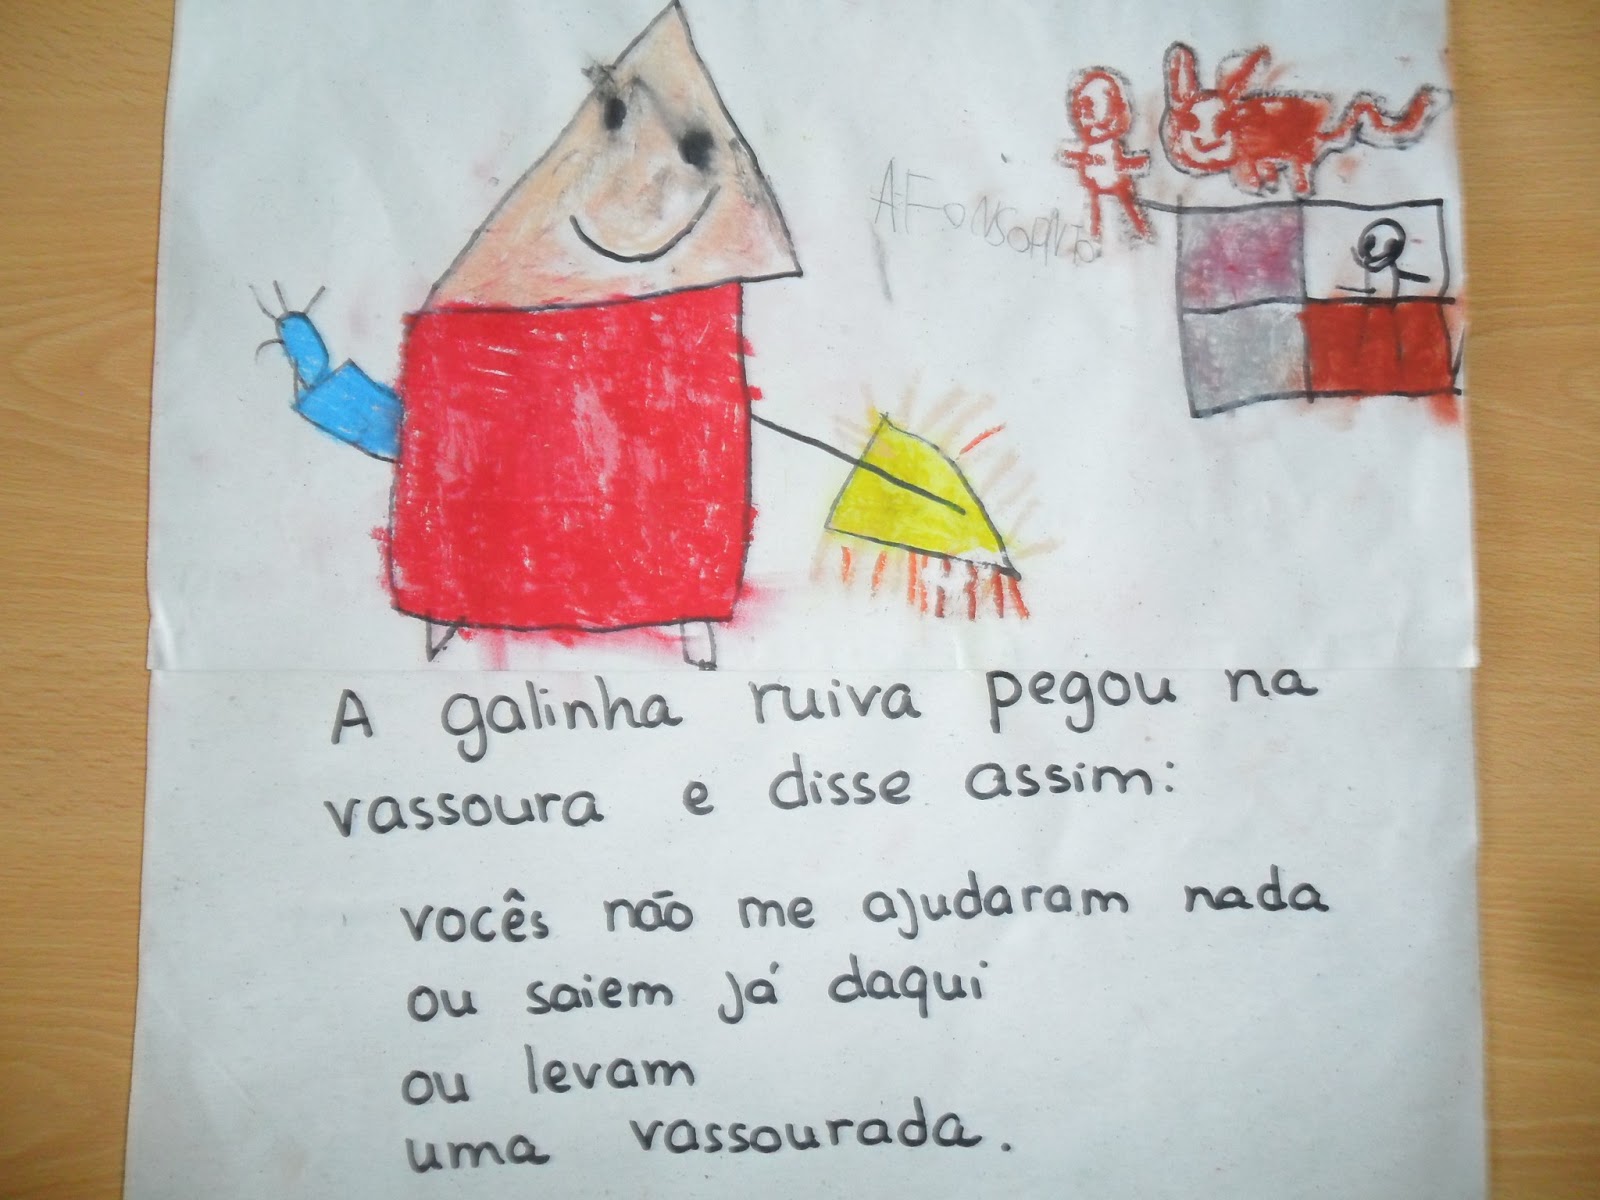 AFONSO ANTO
A galinha ruiva pegou na
vassoura e disse assim:
vocês não me ajudaram nada
ou saiem já daqui
ou levam
uma vassourada.